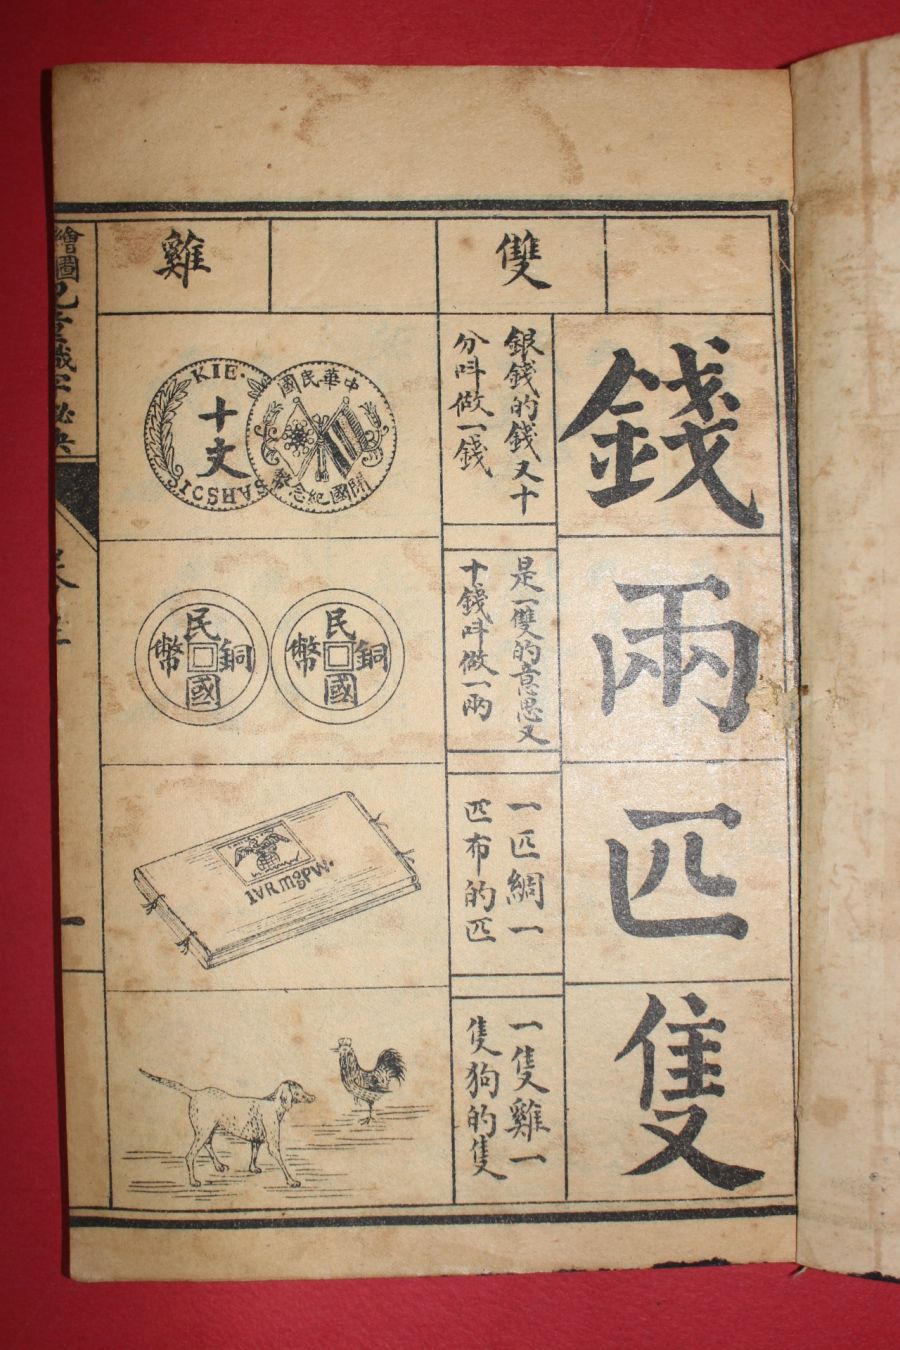 雙
雞
錢
銀錢的錢又十
分呌做一錢
KIE.
十文
SAHSOIC
中華民國
開國紀念幣
兩
是一雙的意思又
十錢呌做一兩
民國銅幣
民國銅幣
匹
一匹綢一
匹布的匹
IVRMgPW.
隻
一隻雞一
隻狗的隻
繪圖